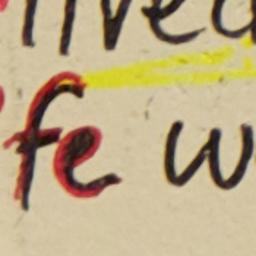 lived
fe w